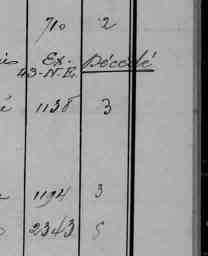 710 2
Ex. Décédé
43-N.E.
é 1138 3
1194 3
2343 5